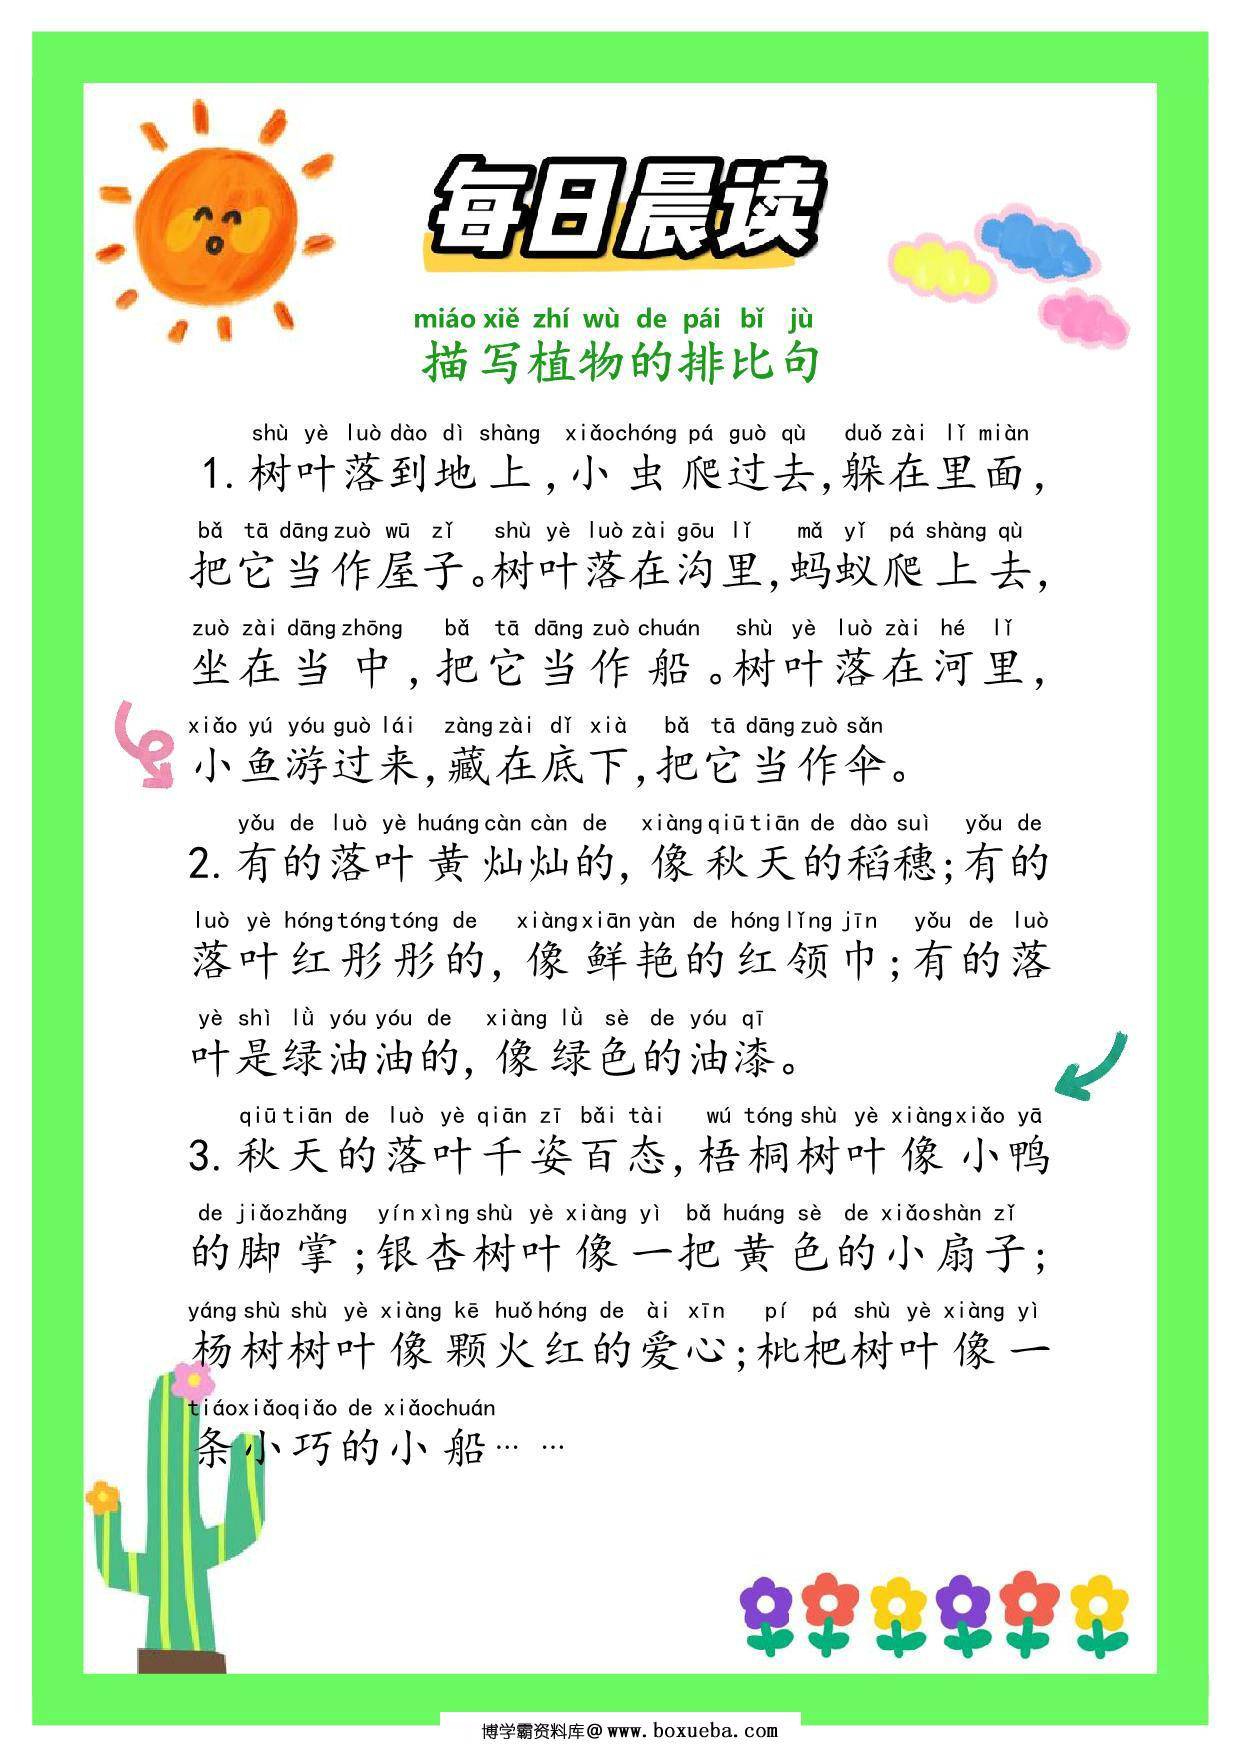 每日晨读
miáo xiě zhí wù de pái bǐ jù
描写植物的排比句
shù yè luò dào dì shàng xiǎochóng pá guò qù duǒ zài lǐ miàn
1.树叶落到地上,小虫爬过去,躲在里面,
bǎ tā dāng zuò wū zǐ shù yè luò zài gōu lǐ mǎ yǐ pá shàng qù
把它当作屋子。树叶落在沟里,蚂蚁爬上去,
zuò zài dāng zhōng bǎ tā dāng zuò chuán shù yè luò zài hé lǐ
坐在当中,把它当作船。树叶落在河里,
xiǎo yú yóu guò lái zàng zài dǐ xià bǎ tā dāng zuò sǎn
小鱼游过来,藏在底下,把它当作伞。
yǒu de luò yè huáng càn càn de xiàng qiū tiān de dào suì yǒu de
2.有的落叶黄灿灿的,像秋天的稻穗;有的
luò yè hóng tóng tóng de xiàng xiān yàn de hóng lǐng jīn yǒu de luò
落叶红彤彤的,像鲜艳的红领巾;有的落
yè shì lǜ yóu yóu de xiàng lǜ sè de yóu qī
叶是绿油油的,像绿色的油漆。
qiū tiān de luò yè qiān zī bǎi tài wú tóng shù yè xiàng xiǎo yā
3.秋天的落叶千姿百态,梧桐树叶像小鸭
de jiǎo zhǎng yín xìng shù yè xiàng yì bǎ huáng sè de xiǎo shàn zǐ
的脚掌;银杏树叶像一把黄色的小扇子;
yáng shù shù yè xiàng kē huǒ hóng de ài xīn pí pá shù yè xiàng yì
杨树树叶像颗火红的爱心;枇杷树叶像一
tiáo xiǎo qiǎo de xiǎo chuán
条小巧的小船……
博学霸资料库@www.boxueba.com